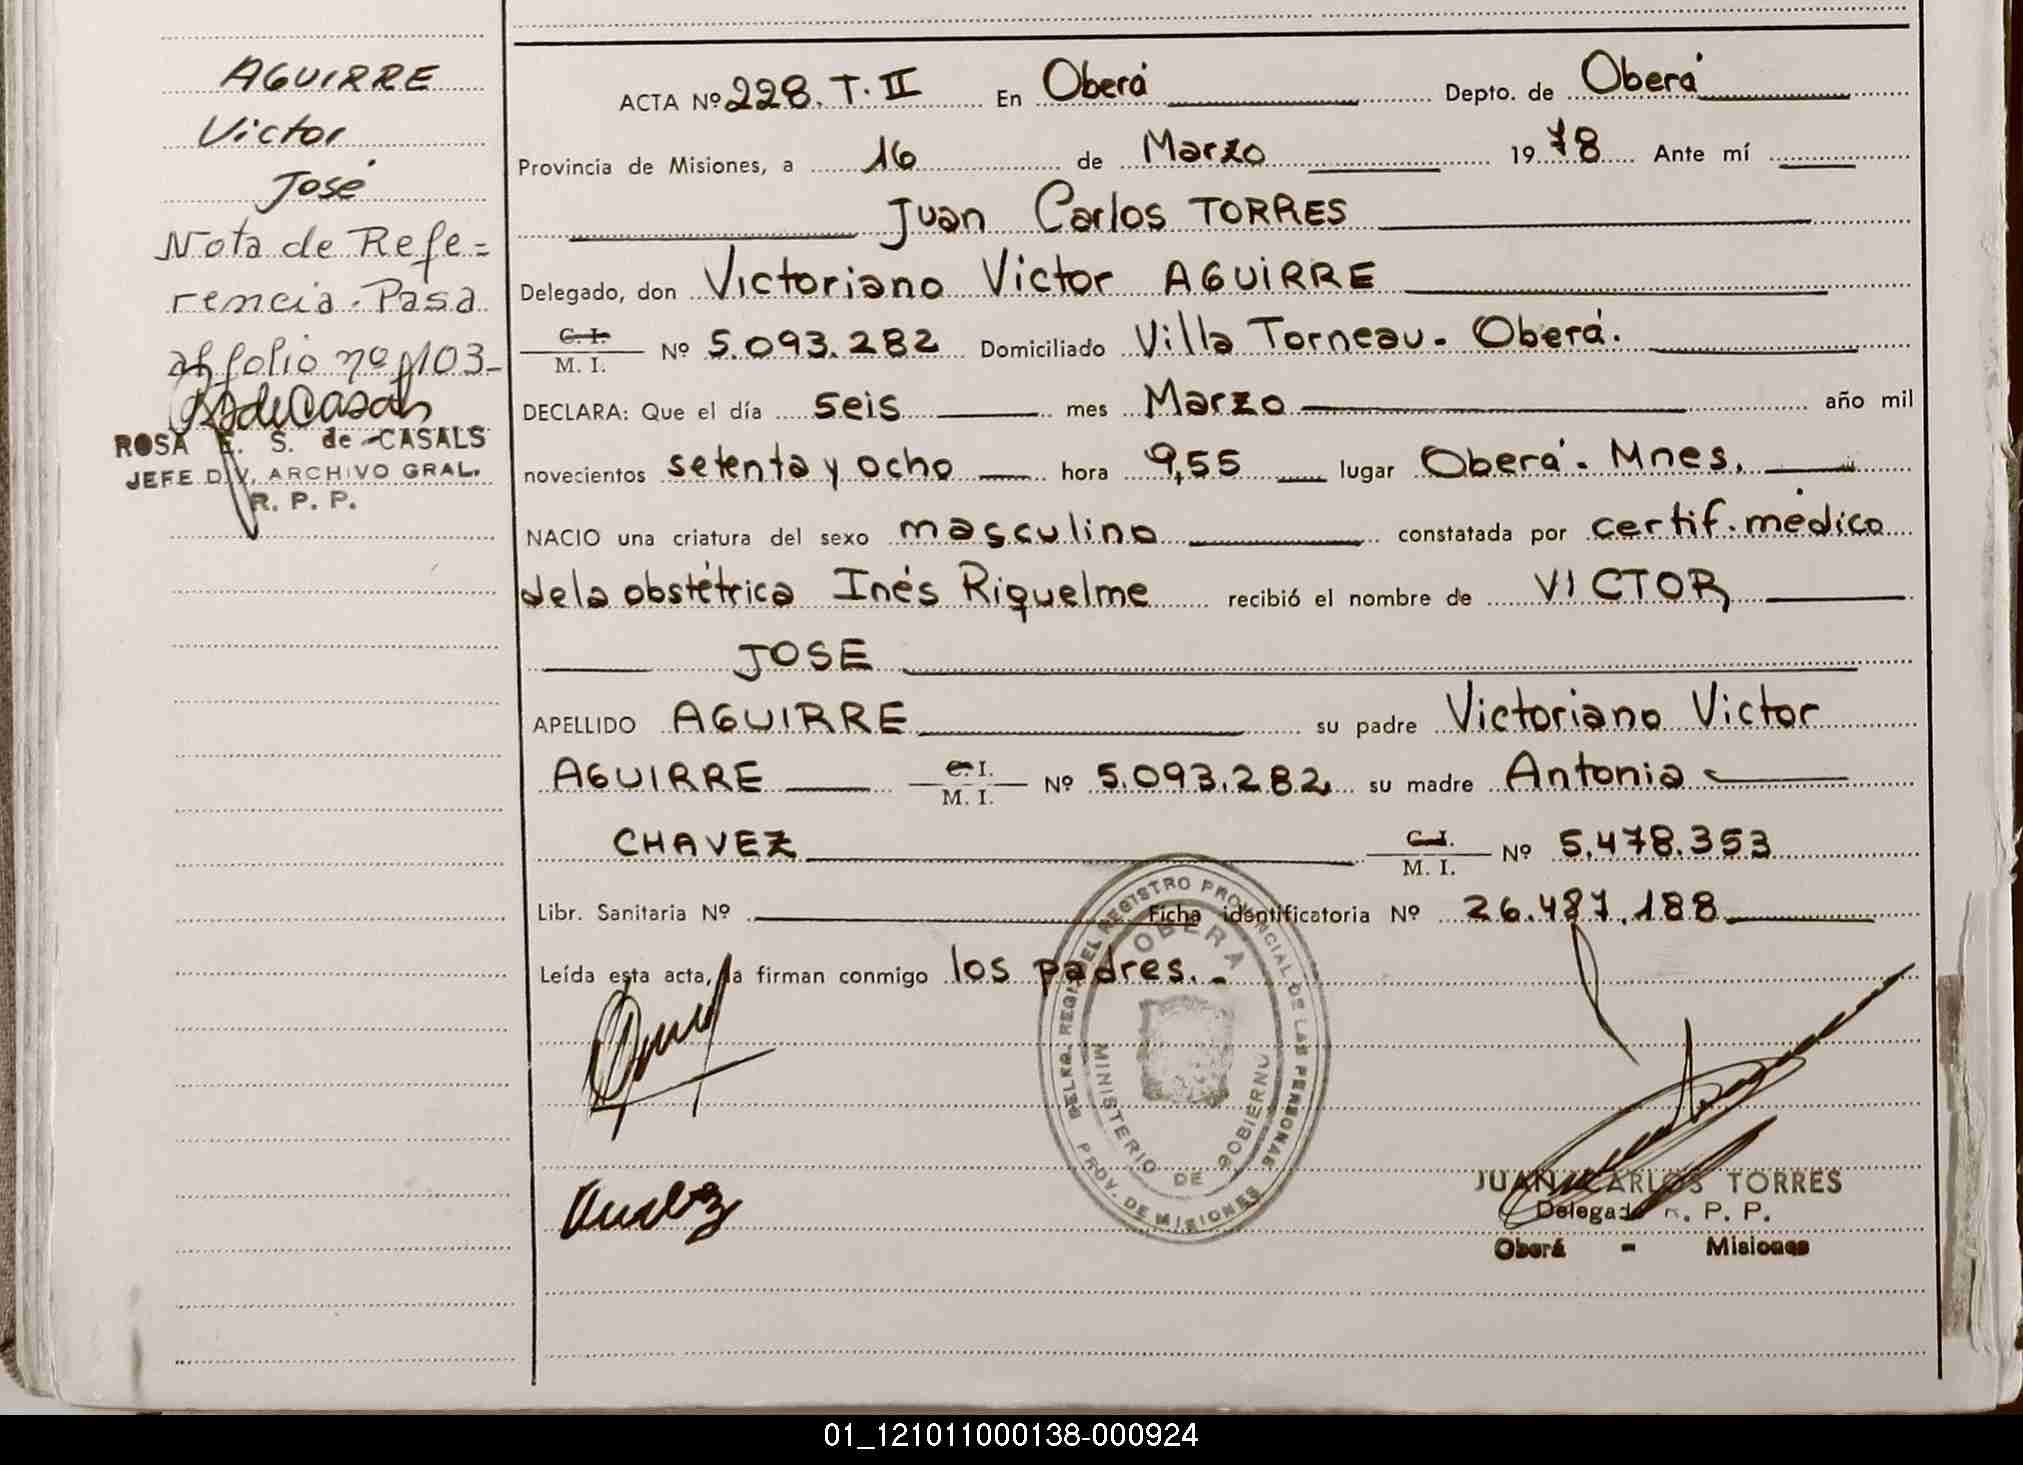 AGUIRRE
Victor
José
Nota de Refe=
rencia. Pasa
al folio nº 103-
ROSA E. S. de CASALS
JEFE DIV. ARCHIVO GRAL.
R. P. P.
ACTA Nº 228. T. II En Oberá Depto. de Oberá
Provincia de Misiones, a 16 de Marzo 1978 Ante mí
Juan Carlos TORRES
Delegado, don Victoriano Victor AGUIRRE
C. I.
M. I. Nº 5.093.282 Domiciliado Villa Torneau - Oberá.
DECLARA: Que el día seis mes Marzo año mil
novecientos setenta y ocho hora 9,55 lugar Oberá. Mnes.
NACIO una criatura del sexo masculino constatada por certif. médico
de la obstétrica Inés Riquelme recibió el nombre de VICTOR
JOSE
APELLIDO AGUIRRE su padre Victoriano Victor
AGUIRRE C. I.
M. I. Nº 5.093.282, su madre Antonia
CHAVEZ C. I.
M. I. Nº 5.478.353
Libr. Sanitaria Nº Ficha identificatoria Nº 26.487.188
Leída esta acta, la firman conmigo los padres. -
REGISTRO PROVINCIAL DE LAS PERSONAS
OBERA
MINISTERIO DE GOBIERNO
PROV. DE MISIONES
JUAN CARLOS TORRES
Delegado R. P. P.
Oberá - Misiones
01_121011000138-000924